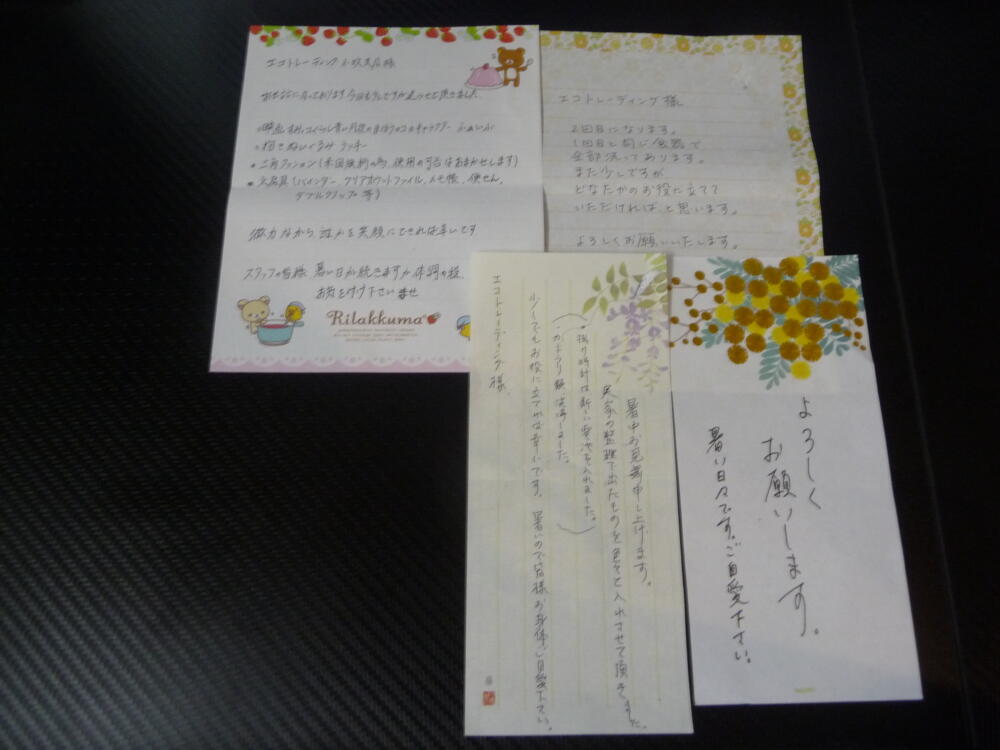 エコトレーディング小牧支店様
お世話になっております 今回も少しですが送らせて頂きました
招きぬいぐるみ ラッキー
三角クッション(未因検針の為、使用の可否はおまかせします)
文房具(バインダー、クリアポケットファイル、メモ帳、便せん、
ダブルクリップ 等)
微力ながら、誰かを笑顔にできれば幸いです
スタッフの皆様 暑い日が続きますが 体調の程、
お気を付け下さいませ
Rilakkuma
エコトレーディング様
2回目になります。
1回目と同じ食器で
全部洗ってあります。
また少しですが
どなたかのお役に立てて
いただければ、と思います。
よろしくお願いいたします。
暑中お見舞申し上げます。
実家の整理で出たものを色々と入れさせて頂きました。
・掛け時計は新しい電池を入れました。
・カトラリー類、洗浄しました。
少しでもお役に立てれば幸いです。暑いので皆様お身体ご自愛下さい。
エコトレーディング様
よろしく
お願いします。
暑い日々です。ご自愛下さい。